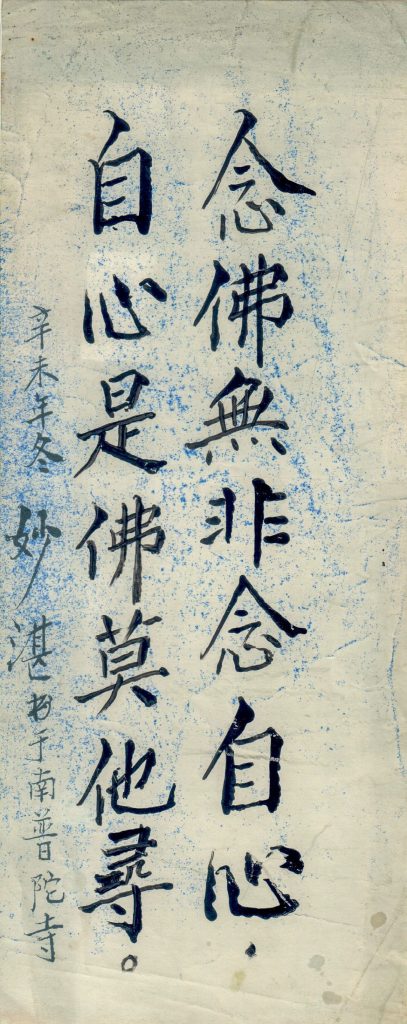 念佛無非念自心．
自心是佛莫他尋。
辛未年冬 妙湛书于南普陀寺